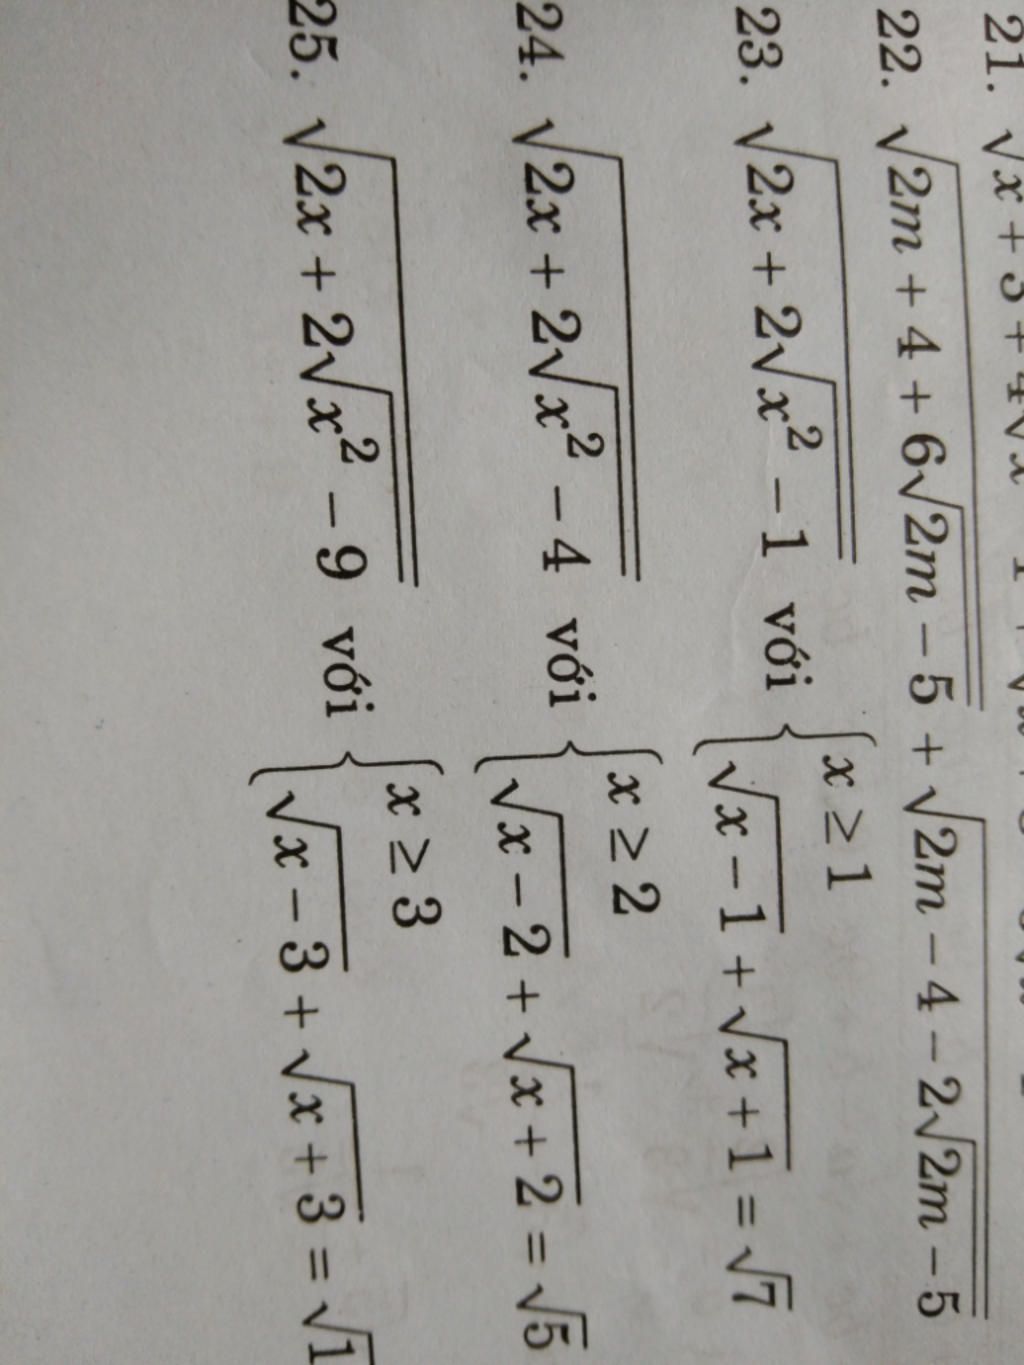 21. √x + 3 + 4√x
22. √2m + 4 + 6√2m − 5 + √2m − 4 − 2√2m − 5
23. √2x + 2√x² − 1 với { x ≥ 1
√x − 1 + √x + 1 = √7
24. √2x + 2√x² − 4 với { x ≥ 2
√x − 2 + √x + 2 = √5
25. √2x + 2√x² − 9 với { x ≥ 3
√x − 3 + √x + 3 = √1